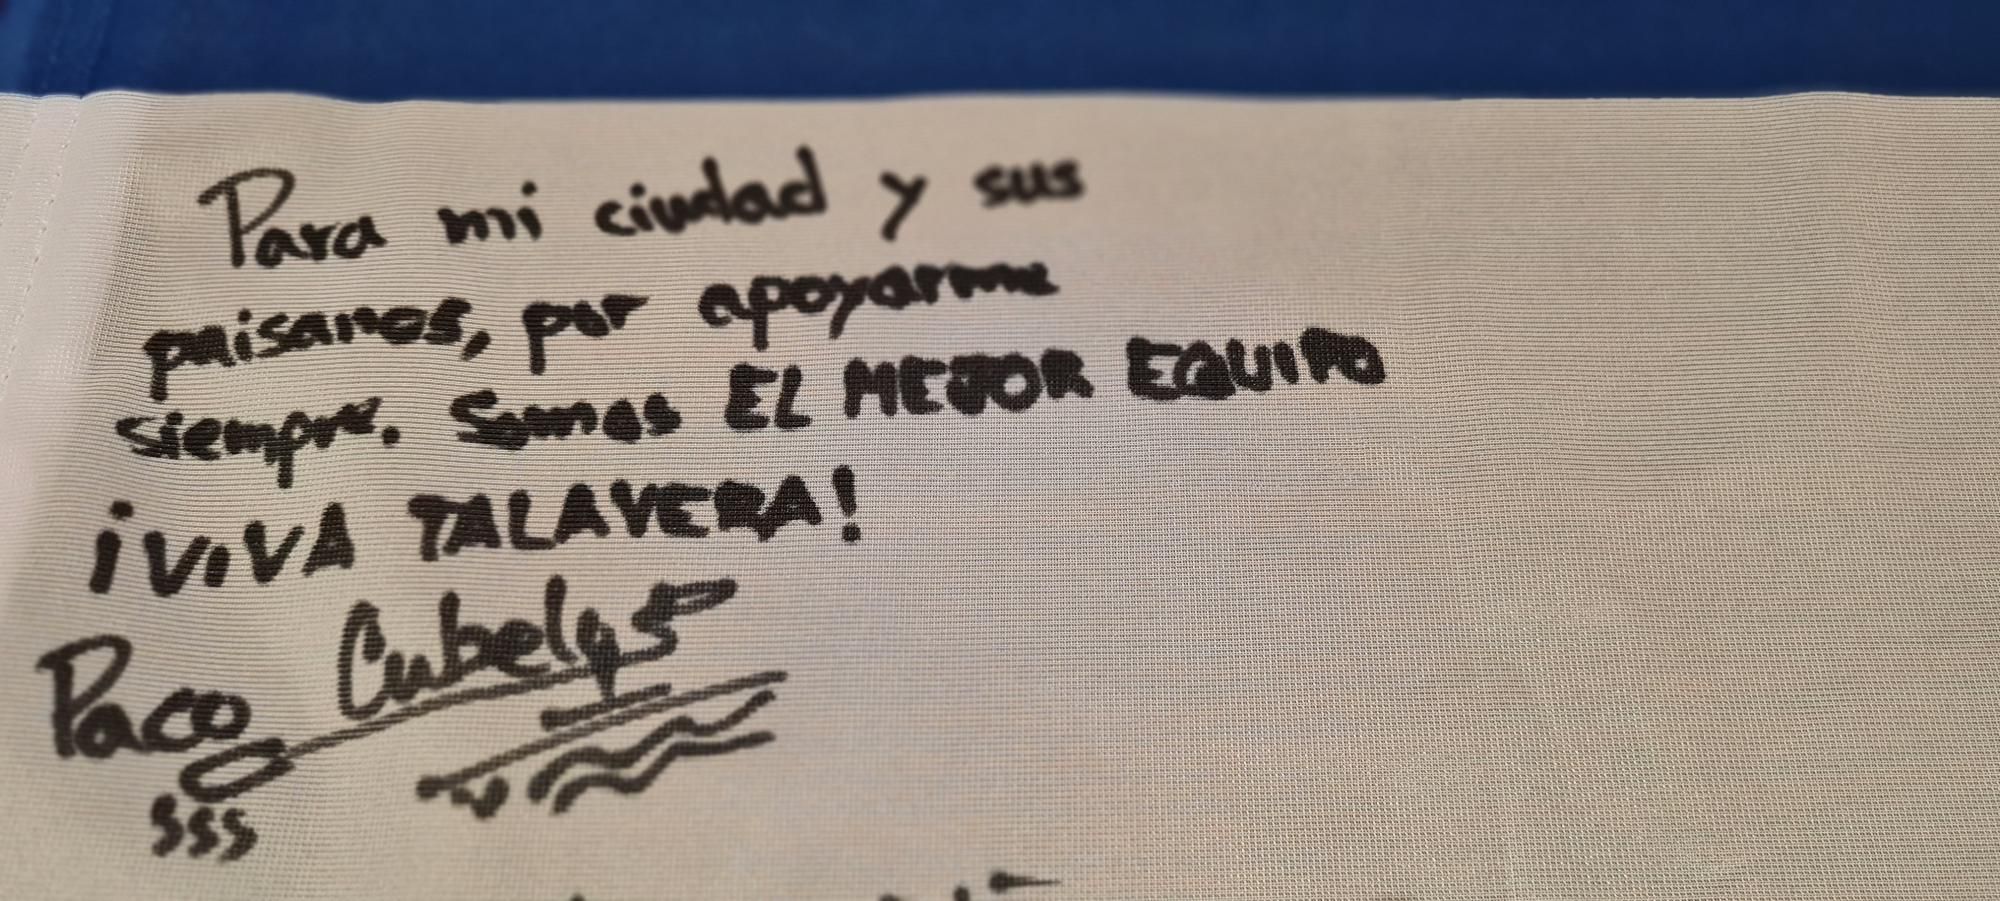 Para mi ciudad y sus
paisanos, por apoyarme
siempre. Somos EL MEJOR EQUIPO
¡VIVA TALAVERA!
Paco Cubelos
sss